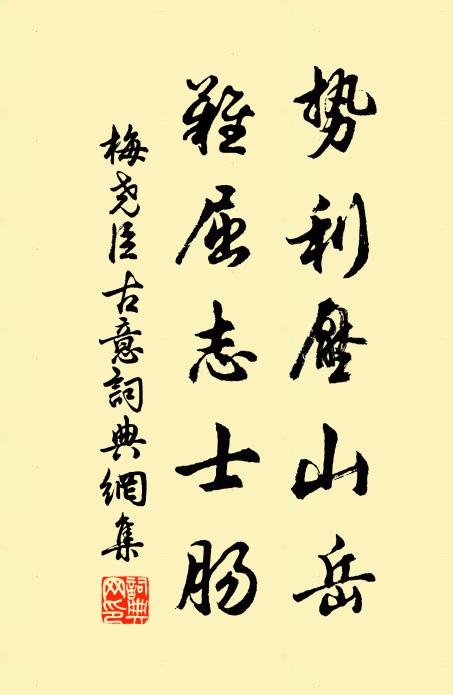 势利壓山岳
難屈志士肠
梅尧臣古意詞典網集
詞典网印